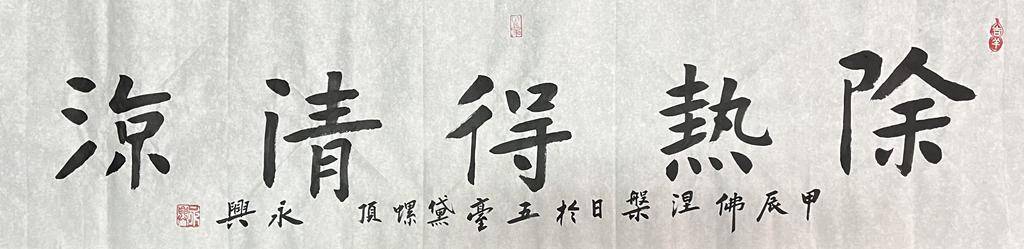 除熱得清涼
甲辰佛涅槃日於五臺黛螺頂 永興